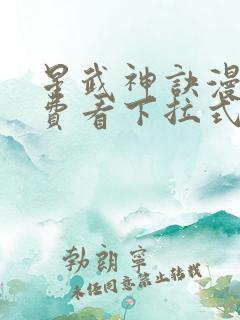 星武神訣漫
費看下拉式
勃朗寧
未经同意禁止转载